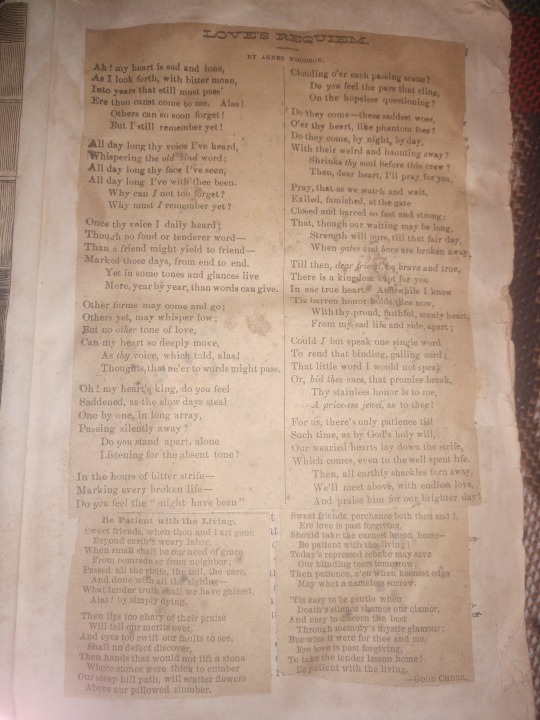 LOVE'S REQUIEM.
BY AGNES WOODSON.
Ah! my heart is sad and lone,
As I look forth, with bitter moan,
Into years that still must pass
Ere thou canst come to me. Alas!
Others can so soon forget!
But I still remember yet!
All day long thy voice I've heard,
Whispering the old kind word;
All day long thy face I've seen,
All day long I've with thee been.
Why can I not too forget?
Why must I remember yet?
Once thy voice I daily heard;
Though no fond or tenderer word—
Than a friend might yield to friend—
Marked those days, from end to end.
Yet in some tones and glances live
More, year by year, than words can give.
Other forms may come and go;
Others yet, may whisper low;
But no other tone of love,
Can my heart so deeply move,
As thy voice, which told, alas!
Thoughts, that ne'er to words might pass.
Oh! my heart's king, do you feel
Saddened, as the slow days steal
One by one, in long array,
Passing silently away?
Do you stand apart, alone
Listening for the absent tone?
In the hours of bitter strife—
Marking every broken life—
Do you feel the "might have been"
Clouding o'er each passing scene?
Do you feel the pars that cling,
On the hopeless questioning?
Do they come—these saddest woes,
O'er thy heart, like phantom foes?
Do they come, by night, by day,
With their weird and haunting sway?
Shrinks thy soul before this crew?
Then, dear heart, I'll pray for you,
Pray, that as we watch and wait,
Exiled, famished, at the gate
Closed and barred so fast and strong;
That, though our waiting may be long,
Strength will ours, till that fair day,
When gates and bars are broken away,
Till then, dear friend, be brave and true,
There is a kingdom kept for you
In one true heart. And while I know
'Tis barren honor holds thee now,
With thy proud, faithful, manly heart,
From my sad life and side, apart;
Could I but speak one single word
To rend that binding, galling cord;
That little word I would not speak
Or, bid thee once, that promise break,
Thy stainless honor is to me,
A priceless jewel, as to thee!
For us, there's only patience till
Such time, as by God's holy will,
Our wearied hearts lay down the strife,
Which comes, even to the well spent life.
Then, all earthly shackles torn away,
We'll meet above, with endless love,
And praise him for our brighter day!
Be Patient with the Living.
Sweet friends, when thou and I art gone
Beyond earth's weary labor,
When small shall be our need of grace
From comrade or from neighbor;
Passed all the strife, the toil, the care,
And done with all the sighing—
What tender truth shall we have gained,
Alas! by simply dying.
Then lips too chary of their praise
Will tell our merits over,
And eyes too swift our faults to see,
Shall no defect discover,
Then hands that would not lift a stone
Where stones were thick to cumber
Our steep hill path, will scatter flowers
Above our pillowed slumber.
Sweet friends, perchance both thou and I,
Ere love is past forgiving,
Should take the earnest lesson home—
Be patient with the living!
Today's repressed rebuke may save
Our blinding tears tomorrow;
Then patience, e'en when keenest edge
May whet a nameless sorrow.
'Tis easy to be gentle when
Death's silence shames our clamor,
And easy to discern the best
Through memory's mystic glamour;
But wise it were for thee and me,
Ere love is past forgiving,
To take the tender lesson home!
Be patient with the living.
—GOOD CHEER.